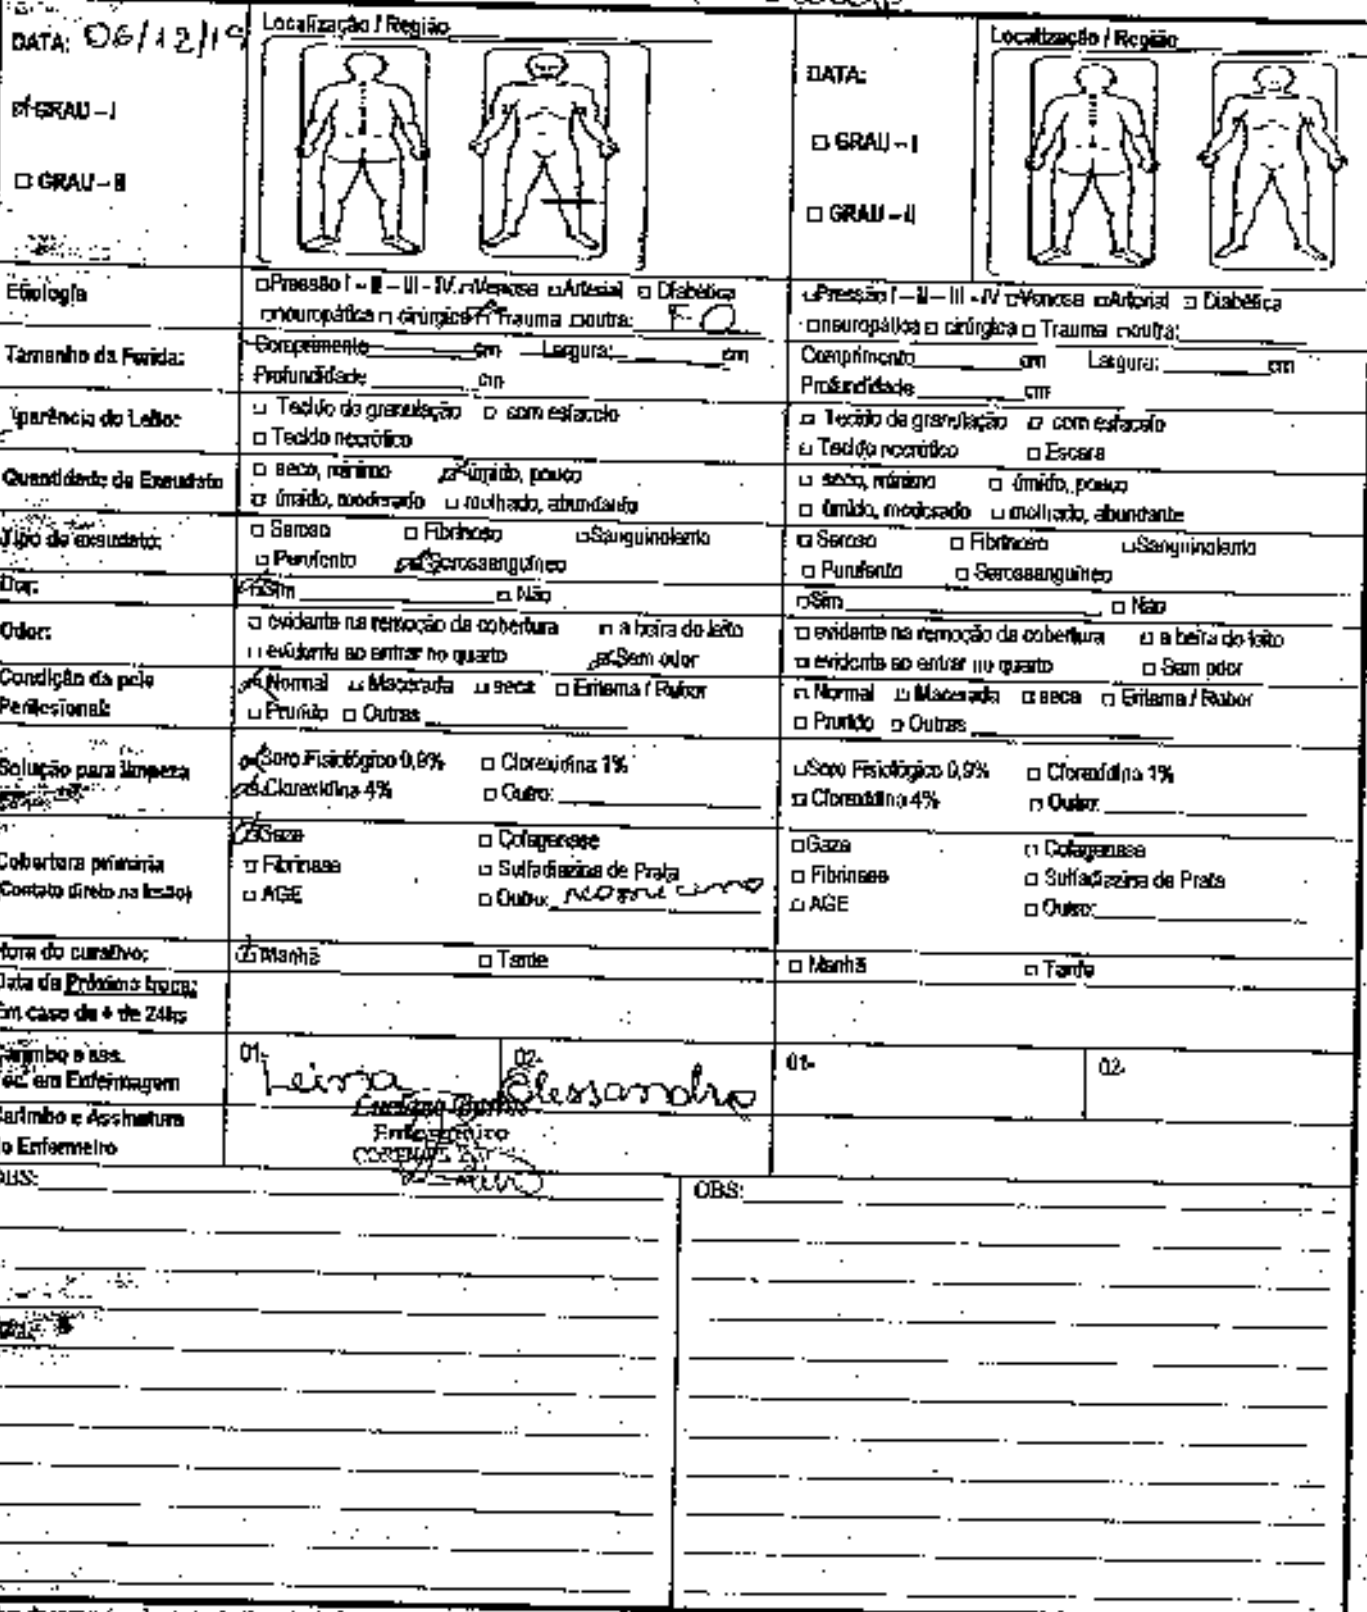 DATA: 06/12/19
Localização / Região
☑ GRAU – I
☐ GRAU – II
DATA:
☐ GRAU – I
☐ GRAU – II
Localização / Região
Etiologia
☐ Pressão I – II – III – IV ☐ Venosa ☐ Arterial ☐ Diabética
☐ neuropática ☐ cirúrgica ☑ Trauma ☐ outra: F O
☐ Pressão I – II – III – IV ☐ Venosa ☐ Arterial ☐ Diabética
☐ neuropática ☐ cirúrgica ☐ Trauma ☐ outra:
Tamanho da Ferida:
Comprimento cm Largura: cm
Profundidade cm
Comprimento cm Largura: cm
Profundidade cm
Aparência do Leito:
☐ Tecido de granulação ☐ com esfacelo
☐ Tecido necrótico
☐ Tecido de granulação ☐ com esfacelo
☐ Tecido necrótico ☐ Escara
Quantidade de Exsudato
☐ seco, mínimo ☑ úmido, pouco
☐ úmido, moderado ☐ molhado, abundante
☐ seco, mínimo ☐ úmido, pouco
☐ úmido, moderado ☐ molhado, abundante
Tipo de exsudato:
☐ Seroso ☐ Fibrinoso ☐ Sanguinolento
☐ Purulento ☑ Serossanguíneo
☐ Seroso ☐ Fibrinoso ☐ Sanguinolento
☐ Purulento ☐ Serossanguíneo
Dor:
☑ Sim ☐ Não
☐ Sim ☐ Não
Odor:
☐ evidente na remoção da cobertura ☐ a beira do leito
☐ evidente ao entrar no quarto ☑ Sem odor
☐ evidente na remoção da cobertura ☐ a beira do leito
☐ evidente ao entrar no quarto ☐ Sem odor
Condição da pele
Perilesional:
☑ Normal ☐ Macerada ☐ seca ☐ Eritema / Rubor
☐ Prurido ☐ Outras
☐ Normal ☐ Macerada ☐ seca ☐ Eritema / Rubor
☐ Prurido ☐ Outras
Solução para limpeza
☑ Soro Fisiológico 0,9% ☐ Clorexidina 1%
☑ Clorexidina 4% ☐ Outro:
☐ Soro Fisiológico 0,9% ☐ Clorexidina 1%
☐ Clorexidina 4% ☐ Outro:
Cobertura primária
(Contato direto na lesão)
☑ Gaze ☐ Colagenase
☐ Fibrinase ☐ Sulfadiazina de Prata
☐ AGE ☐ Outro:
☐ Gaze ☐ Colagenase
☐ Fibrinase ☐ Sulfadiazina de Prata
☐ AGE ☐ Outro:
Hora do curativo:
☑ Manhã ☐ Tarde
☐ Manhã ☐ Tarde
Data da Próxima troca:
Em caso de + de 24hs
Carimbo e ass.
Tec. em Enfermagem
01- Leina
02- Alessandra
01-
02-
Carimbo e Assinatura
do Enfermeiro
OBS:
OBS: